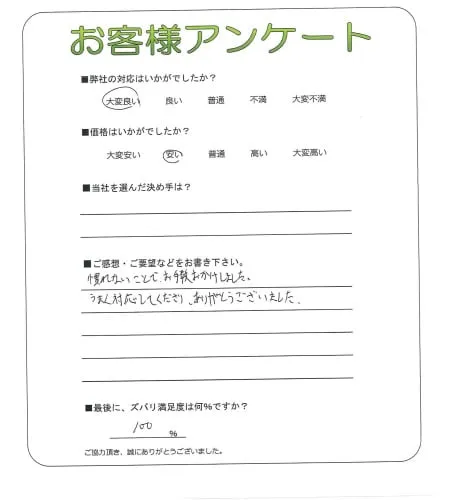 お客様アンケート
■弊社の対応はいかがでしたか？
大変良い 良い 普通 不満 大変不満
■価格はいかがでしたか？
大変安い 安い 普通 高い 大変高い
■当社を選んだ決め手は？
■ご感想・ご要望などをお書き下さい。
慣れないことで、お手数おかけしました。
うまく対応してくださり、ありがとうございました。
■最後に、ズバリ満足度は何%ですか？
100 %
ご協力頂き、誠にありがとうございました。